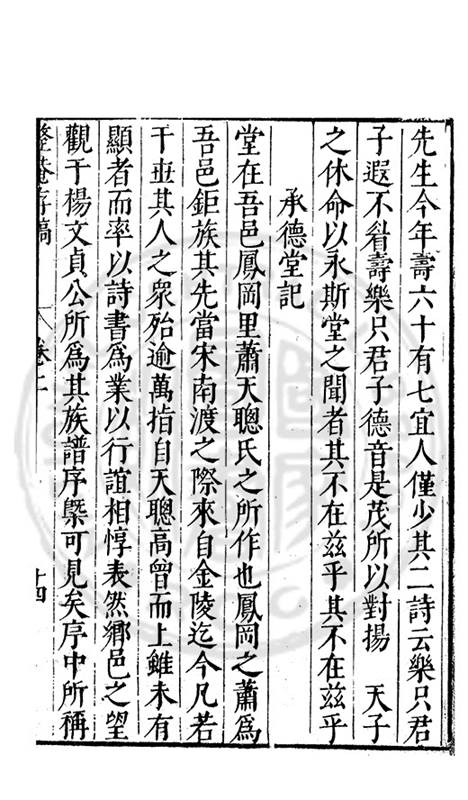 先生今年壽六十有七宜人僅少其二詩云樂只君
子遐不眉壽樂只君子德音是茂所以對揚　天子
之休命以永斯堂之聞者其不在兹乎其不在兹乎
承德堂記
堂在吾邑鳳岡里蕭天聰氏之所作也鳳岡之蕭爲
吾邑鉅族其先當宋南渡之際來自金陵迄今凡若
干世其人之衆殆逾萬指自天聰高曾而上雖未有
顯者而率以詩書爲業以行誼相惇表然鄉邑之望
觀于楊文貞公所爲其族譜序槩可見矣序中所稱
整菴存稿　卷二　十四